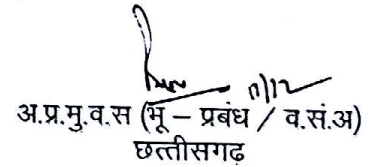 अ.प्र.मु.व.स (भू – प्रबंध / व.सं.अ)
छत्तीसगढ़